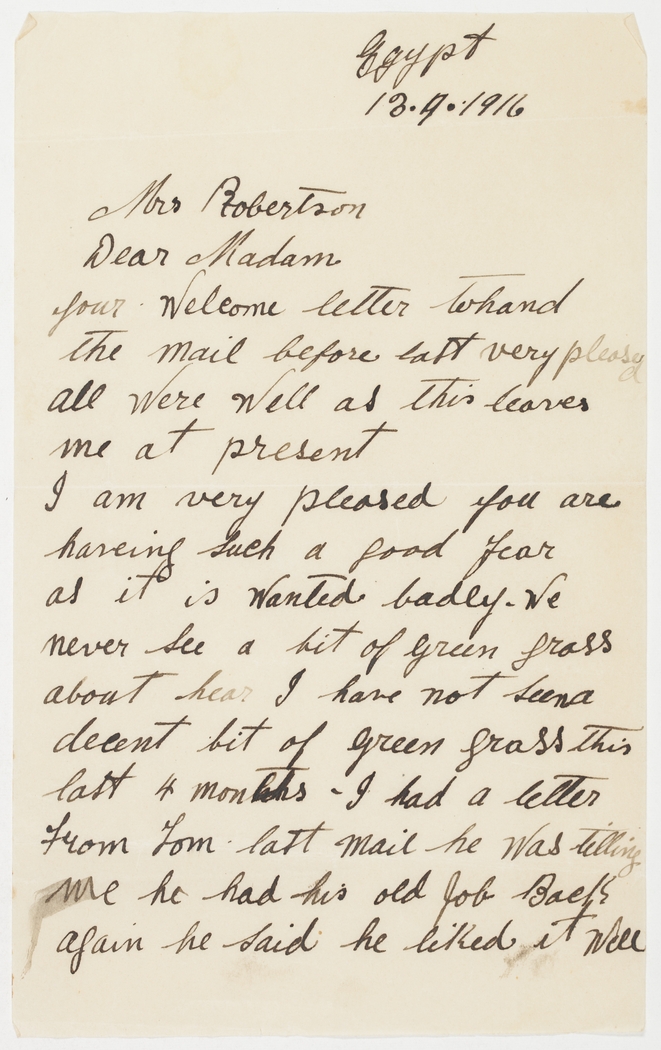 Egypt
13.9.1916
Mrs Robertson
Dear Madam
your Welcome letter tohand
the mail before last very pleasd
all were well as this leaves
me at present
I am very pleased you are
haveing such a good year
as it is wanted badly. We
never see a bit of green grass
about hear I have not seen a
decent bit of green grass this
last 4 months - I had a letter
From Tom last mail he was telling
me he had his old Job Back
again he said he liked it well